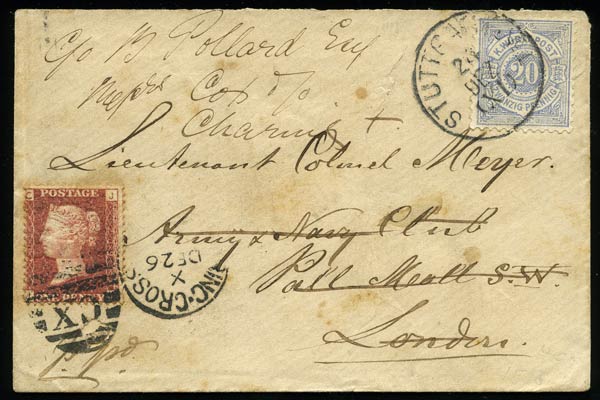 c/o B Pollard Esq
Messrs Cox & Co
Charing +
Lieutenant Colonel Meyer.
Army & Navy Club
Pall Mall S.W.
London.
p. pd
STUTTGART
20
ZWANZIG PFENNIG
POST
C J
POSTAGE
ONE PENNY
CX
ING-CROSS
X
DE 26